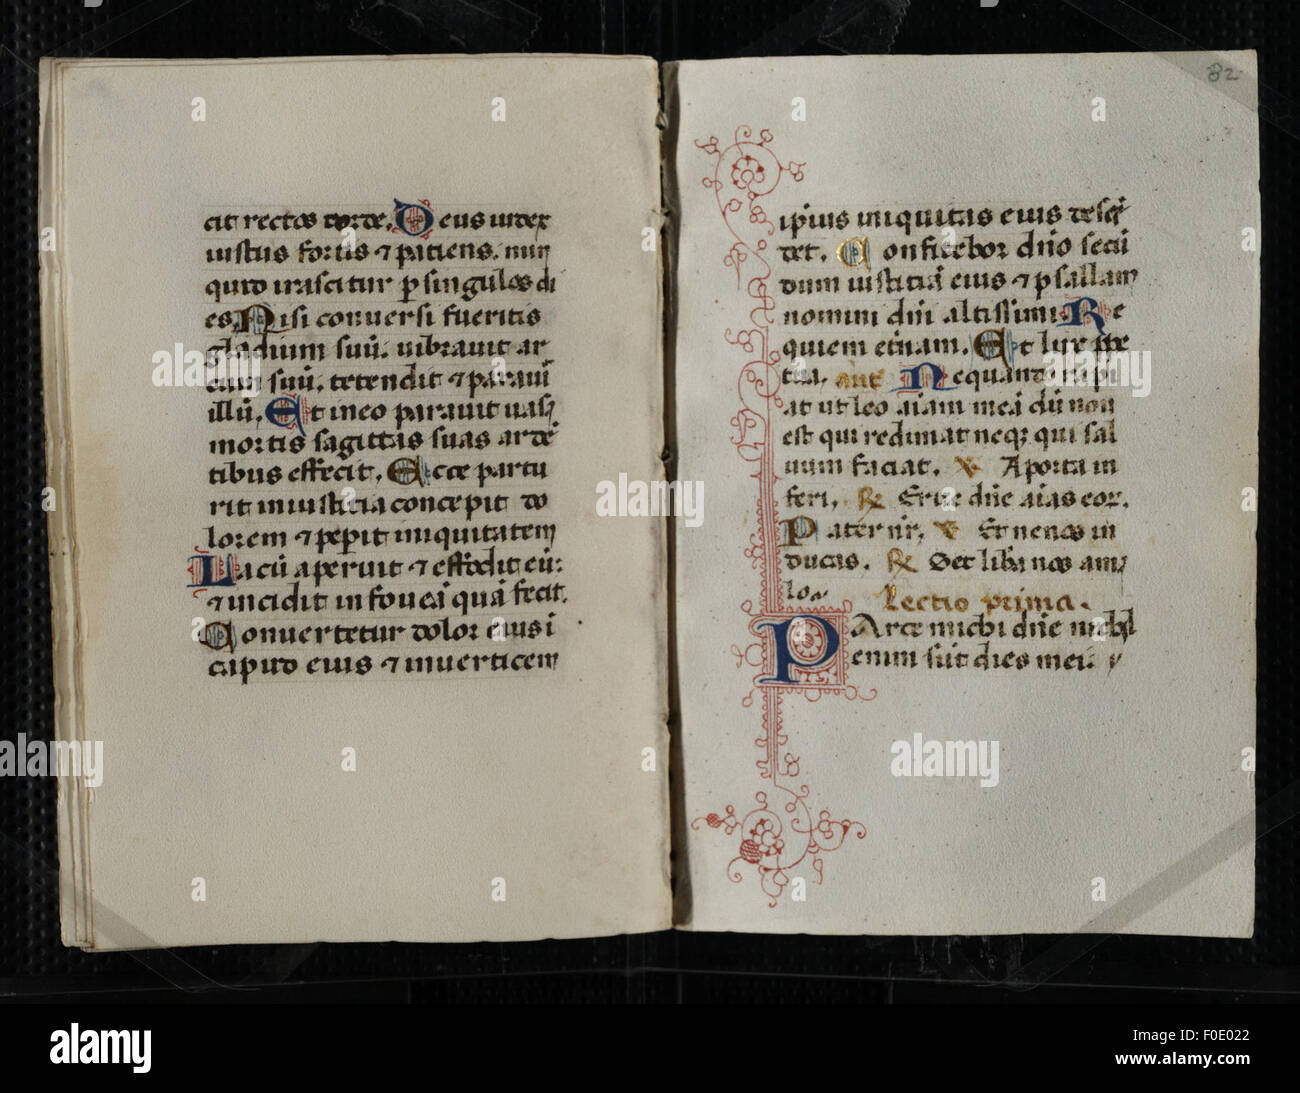 cit rectos corde. Deus iudex
iustus fortis ⁊ patiens. nun
quid irascitur ꝑ singulos di
es. Nisi conuersi fueritis
gladium suū. uibrauit ar
cum suū. tetendit ⁊ parauī
illū. Et in eo parauit uasa
mortis sagittas suas ardē
tibus effecit. Ecce partu
rit iniusticia concepit do
lorem ⁊ peꝑit iniquitatem
Lacū aperuit ⁊ effodit eū:
⁊ incidit in foueā quā fecit.
Conuertetur dolor eius ī
caput eius ⁊ in uerticem
82
ipsius iniquitas eius descē
det. Confitebor dn̄o secū
dum iusticiā eius ⁊ psallam
nomini dn̄i altissimi. Re
quiem et̄nam. Et lux ꝑpe
tua. añt Nequando rapi
at ut leo aīam meā dū non
est qui redimat neqꝫ qui sal
uum faciat. ℣ A porta in
feri. ℟ Erue dn̄e aīas eoꝝ.
Pater nr̄. ℣ Et ne nos in
ducas. ℟ Set libā nos a ma
lo.
Lectio prima.
PArce michi dn̄e nichil
enim sūt dies mei
alamy
Image ID: F0E022
www.alamy.com